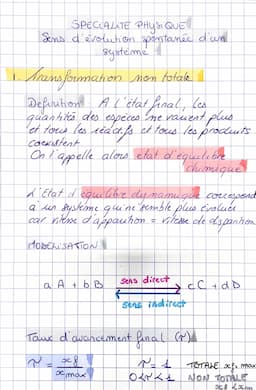 SPECIALITE PHYSIQUE
Sens d'évolution spontanée d'un
système
1. Transformation non totale
Definition A l'état final, les
quantités des espèces ne varient plus
et tous les réactifs et tous les produits
coexistent
On l'appelle alors état d'équilibre
chimique
L'Etat d'équilibre dynamique correspond
à un système qui ne semble plus évoluer
car vitesse d'apparition = vitesse de disparition
MODELISATION
sens direct
a A + b B cC + dD
sens indirect
Taux d'avancement final (τ)
τ = xf / xmax τ = 1 TOTALE xf = xmax
0<τ<1 NON TOTALE
xf < xm